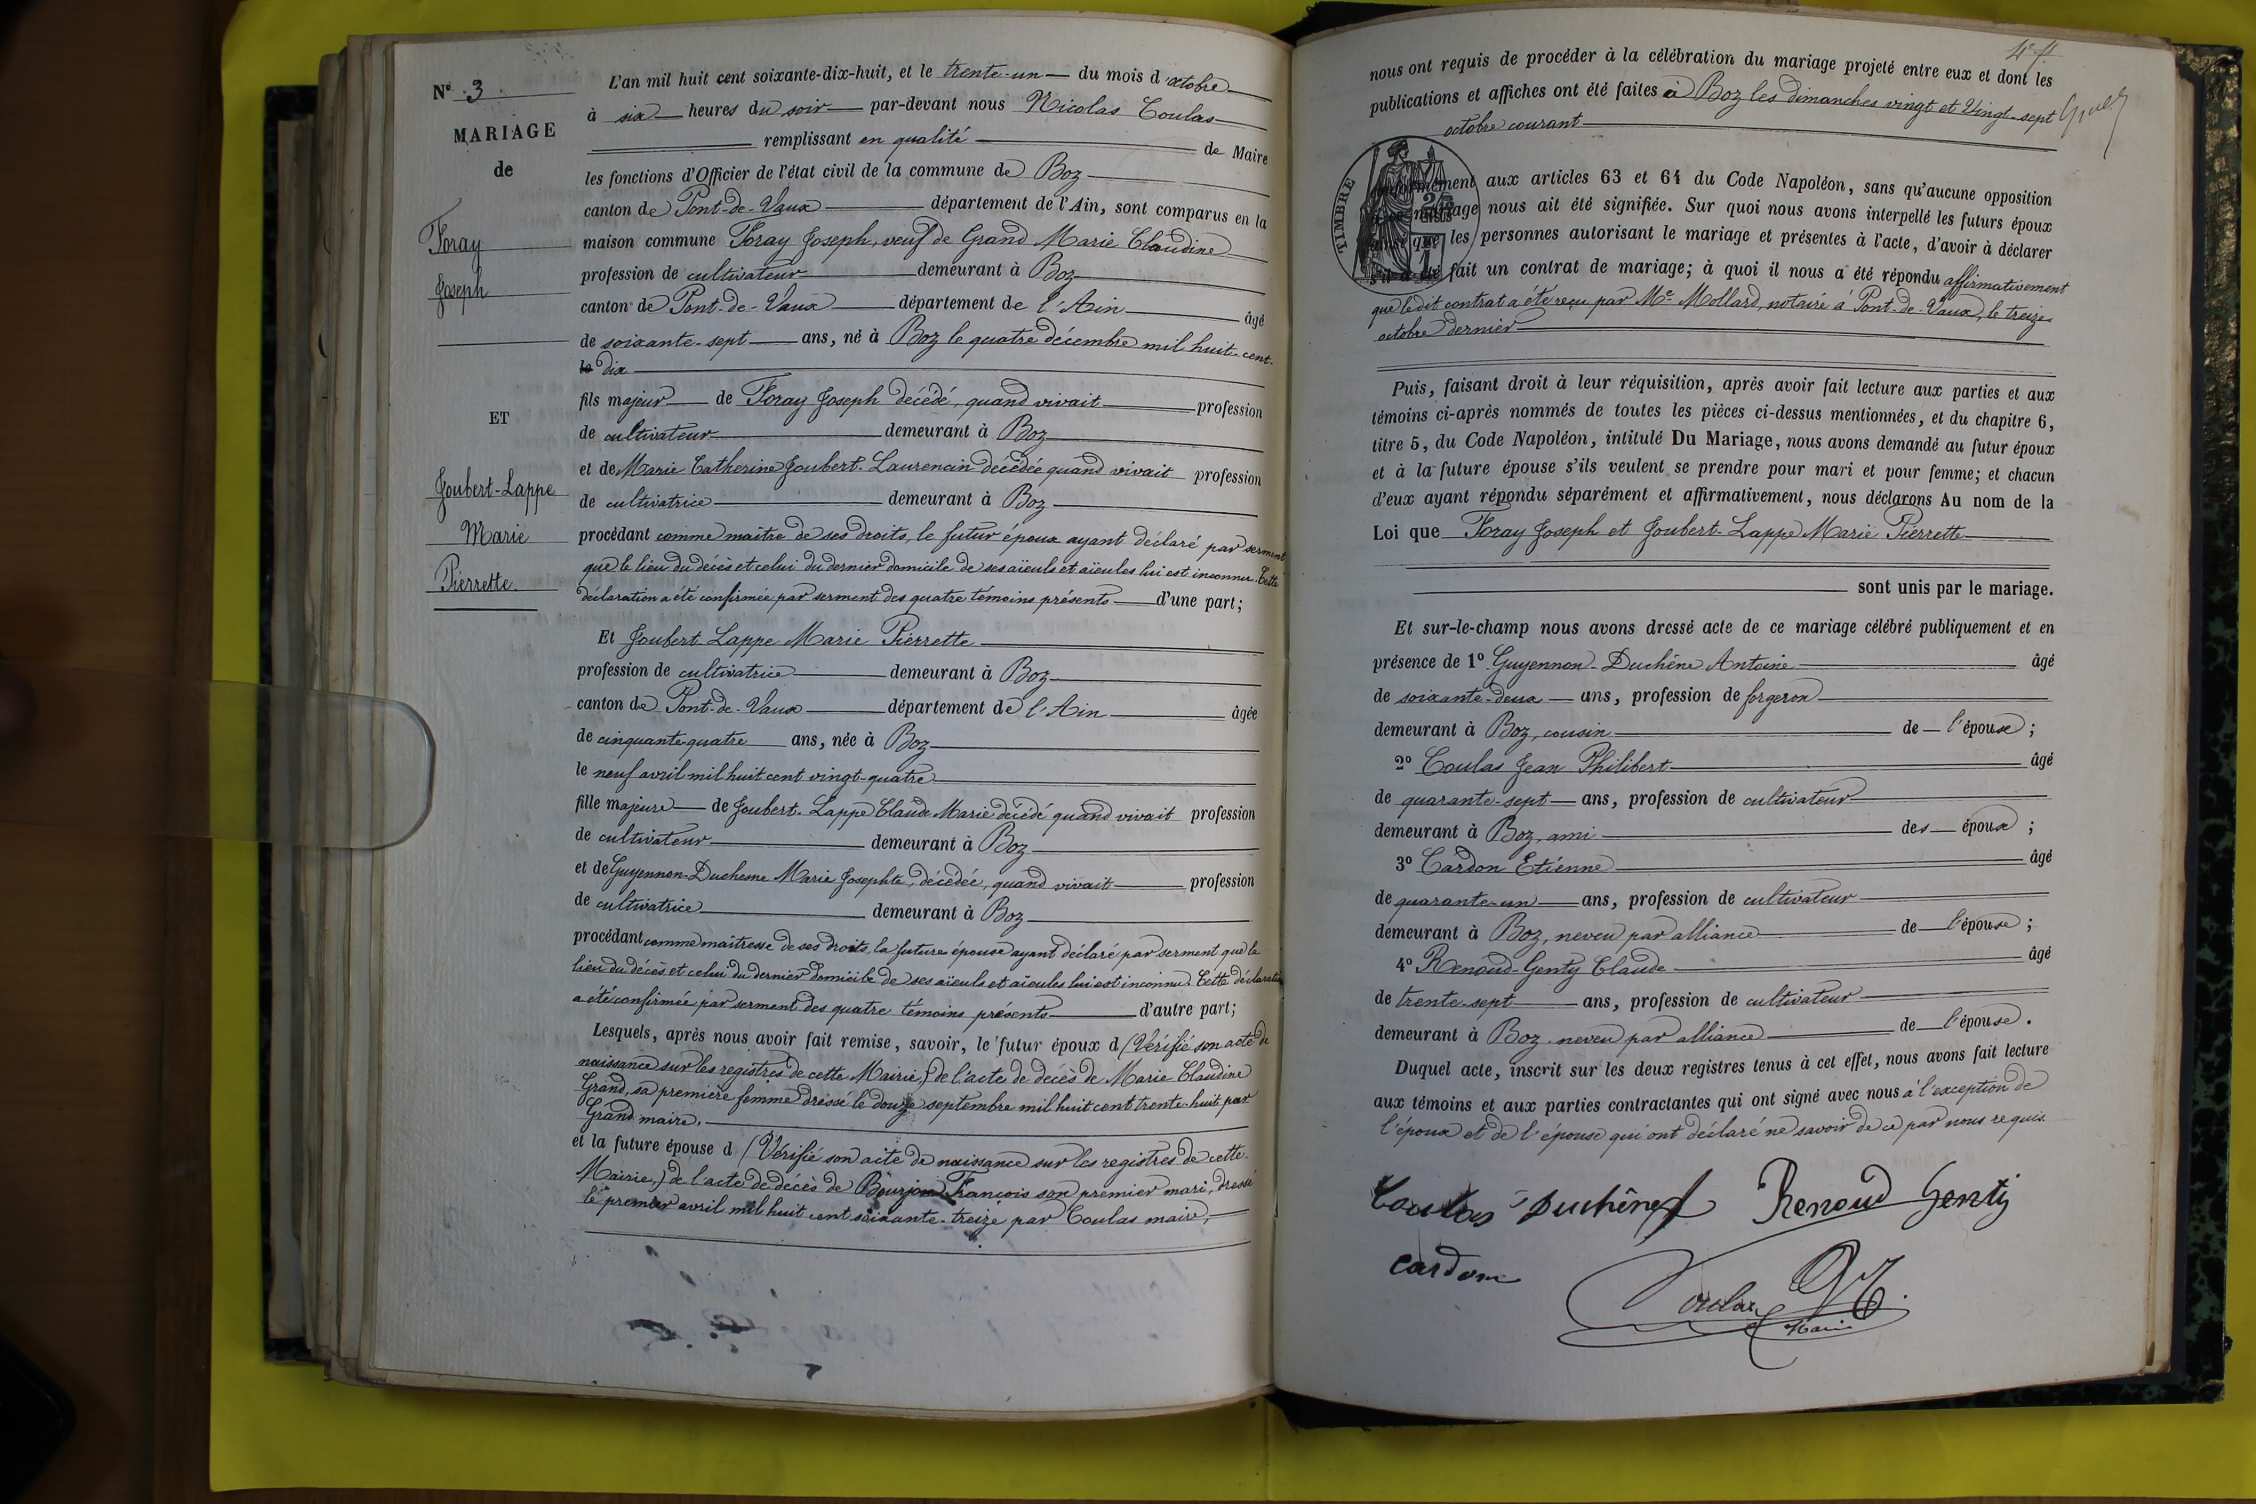 Nº 3
MARIAGE
de
Foray
Joseph
ET
Joubert-Lappe
Marie
Pierrette.
L'an mil huit cent soixante-dix-huit, et le trente-un du mois d'octobre
à six heures du soir par-devant nous Nicolas Coulas
remplissant en qualité de Maire
les fonctions d'Officier de l'état civil de la commune de Boz
canton de Pont-de-Vaux département de l'Ain, sont comparus en la
maison commune Foray Joseph, veuf de Grand Marie Claudine
profession de cultivateur demeurant à Boz
canton de Pont-de-Vaux département de l'Ain âgé
de soixante-sept ans, né à Boz le quatre décembre mil huit-cent-
dix
fils majeur de Foray Joseph décédé, quand vivait profession
de cultivateur demeurant à Boz
et de Marie Catherine Joubert-Laurencin décédée quand vivait profession
de cultivatrice demeurant à Boz
procédant comme maître de ses droits, le futur époux ayant déclaré par serment
que le lieu du décès et celui du dernier domicile de ses aïeuls et aïeules lui est inconnu. Cette
déclaration a été confirmée par serment des quatre témoins présents d'une part;
Et Joubert Lappe Marie Pierrette
profession de cultivatrice demeurant à Boz
canton de Pont-de-Vaux département de l'Ain âgée
de cinquante-quatre ans, née à Boz
le neuf avril mil huit cent vingt-quatre
fille majeure de Joubert-Lappe Claude Marie décédé quand vivait profession
de cultivateur demeurant à Boz
et de Guyennon-Duchesne Marie Josephte, décédée, quand vivait profession
de cultivatrice demeurant à Boz
procédant comme maîtresse de ses droits, la future épouse ayant déclaré par serment que le
lieu du décès et celui du dernier domicile de ses aïeuls et aïeules lui est inconnu. Cette déclaration
a été confirmée par serment des quatre témoins présents d'autre part;
Lesquels, après nous avoir fait remise, savoir, le futur époux d (Vérifié son acte de
naissance sur les registres de cette Mairie,) de l'acte de décès de Marie Claudine
Grand, sa première femme dressé le douze septembre mil huit cent trente-huit par
Grand maire.
et la future épouse d (Vérifié son acte de naissance sur les registres de cette
Mairie,) de l'acte de décès de Bourjon François son premier mari, dressé
le premier avril mil huit cent soixante-treize par Coulas maire,
nous ont requis de procéder à la célébration du mariage projeté entre eux et dont les
publications et affiches ont été faites à Boz les dimanches vingt et Vingt-sept
octobre courant
TIMBRE
conformément aux articles 63 et 64 du Code Napoléon, sans qu'aucune opposition
à ce mariage nous ait été signifiée. Sur quoi nous avons interpellé les futurs époux
ainsi que les personnes autorisant le mariage et présentes à l'acte, d'avoir à déclarer
s'il a été fait un contrat de mariage; à quoi il nous a été répondu affirmativement
que ledit contrat a été reçu par Me Mollard, notaire à Pont-de-Vaux, le treize
octobre dernier
Puis, faisant droit à leur réquisition, après avoir fait lecture aux parties et aux
témoins ci-après nommés de toutes les pièces ci-dessus mentionnées, et du chapitre 6,
titre 5, du Code Napoléon, intitulé Du Mariage, nous avons demandé au futur époux
et à la future épouse s'ils veulent se prendre pour mari et pour femme; et chacun
d'eux ayant répondu séparément et affirmativement, nous déclarons Au nom de la
Loi que Foray Joseph et Joubert-Lappe Marie Pierrette
sont unis par le mariage.
Et sur-le-champ nous avons dressé acte de ce mariage célébré publiquement et en
présence de 1º Guyennon-Duchêne Antoine âgé
de soixante-deux ans, profession de forgeron
demeurant à Boz, cousin de l'épouse;
2º Coulas Jean Philibert âgé
de quarante-sept ans, profession de cultivateur
demeurant à Boz, ami des époux;
3º Cardon Etienne âgé
de quarante-un ans, profession de cultivateur
demeurant à Boz, neveu par alliance de l'épouse;
4º Renoud-Genty Claude âgé
de trente-sept ans, profession de cultivateur
demeurant à Boz neveu par alliance de l'épouse.
Duquel acte, inscrit sur les deux registres tenus à cet effet, nous avons fait lecture
aux témoins et aux parties contractantes qui ont signé avec nous à l'exception de
l'époux et de l'épouse qui ont déclaré ne savoir de ce par nous requis.
Coulas Duchêne Renoud Genty
Cardon
Coulas
Maire